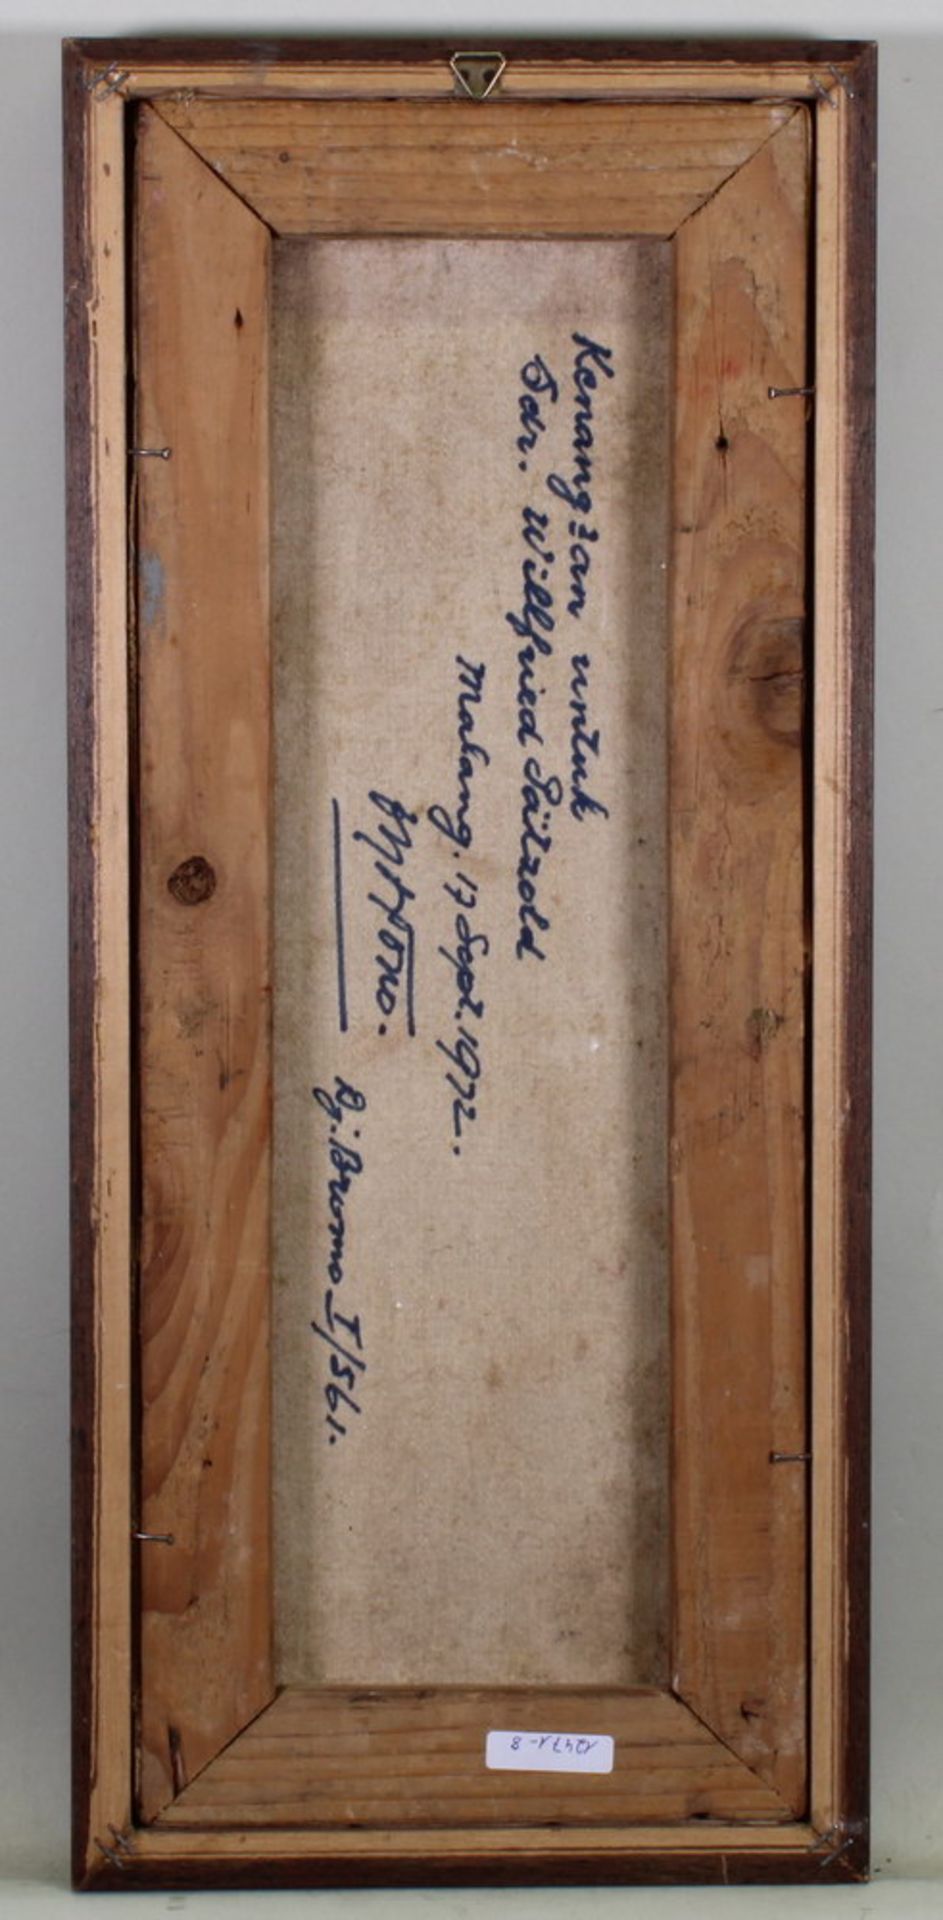 Kenang2an untuk
Sdr. Willfried Sätzold
Malang. 17 Sept. 1972.
Dj. Bromo I/561.
12471-8